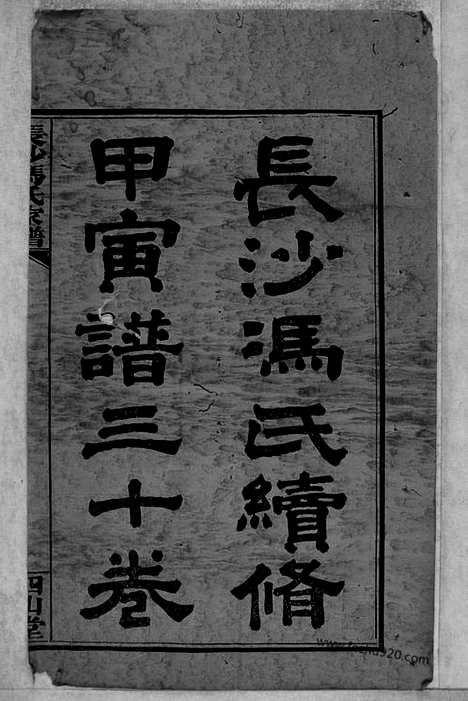 長沙馮氏續脩
甲寅譜三十卷
長沙馮氏家譜
四山堂